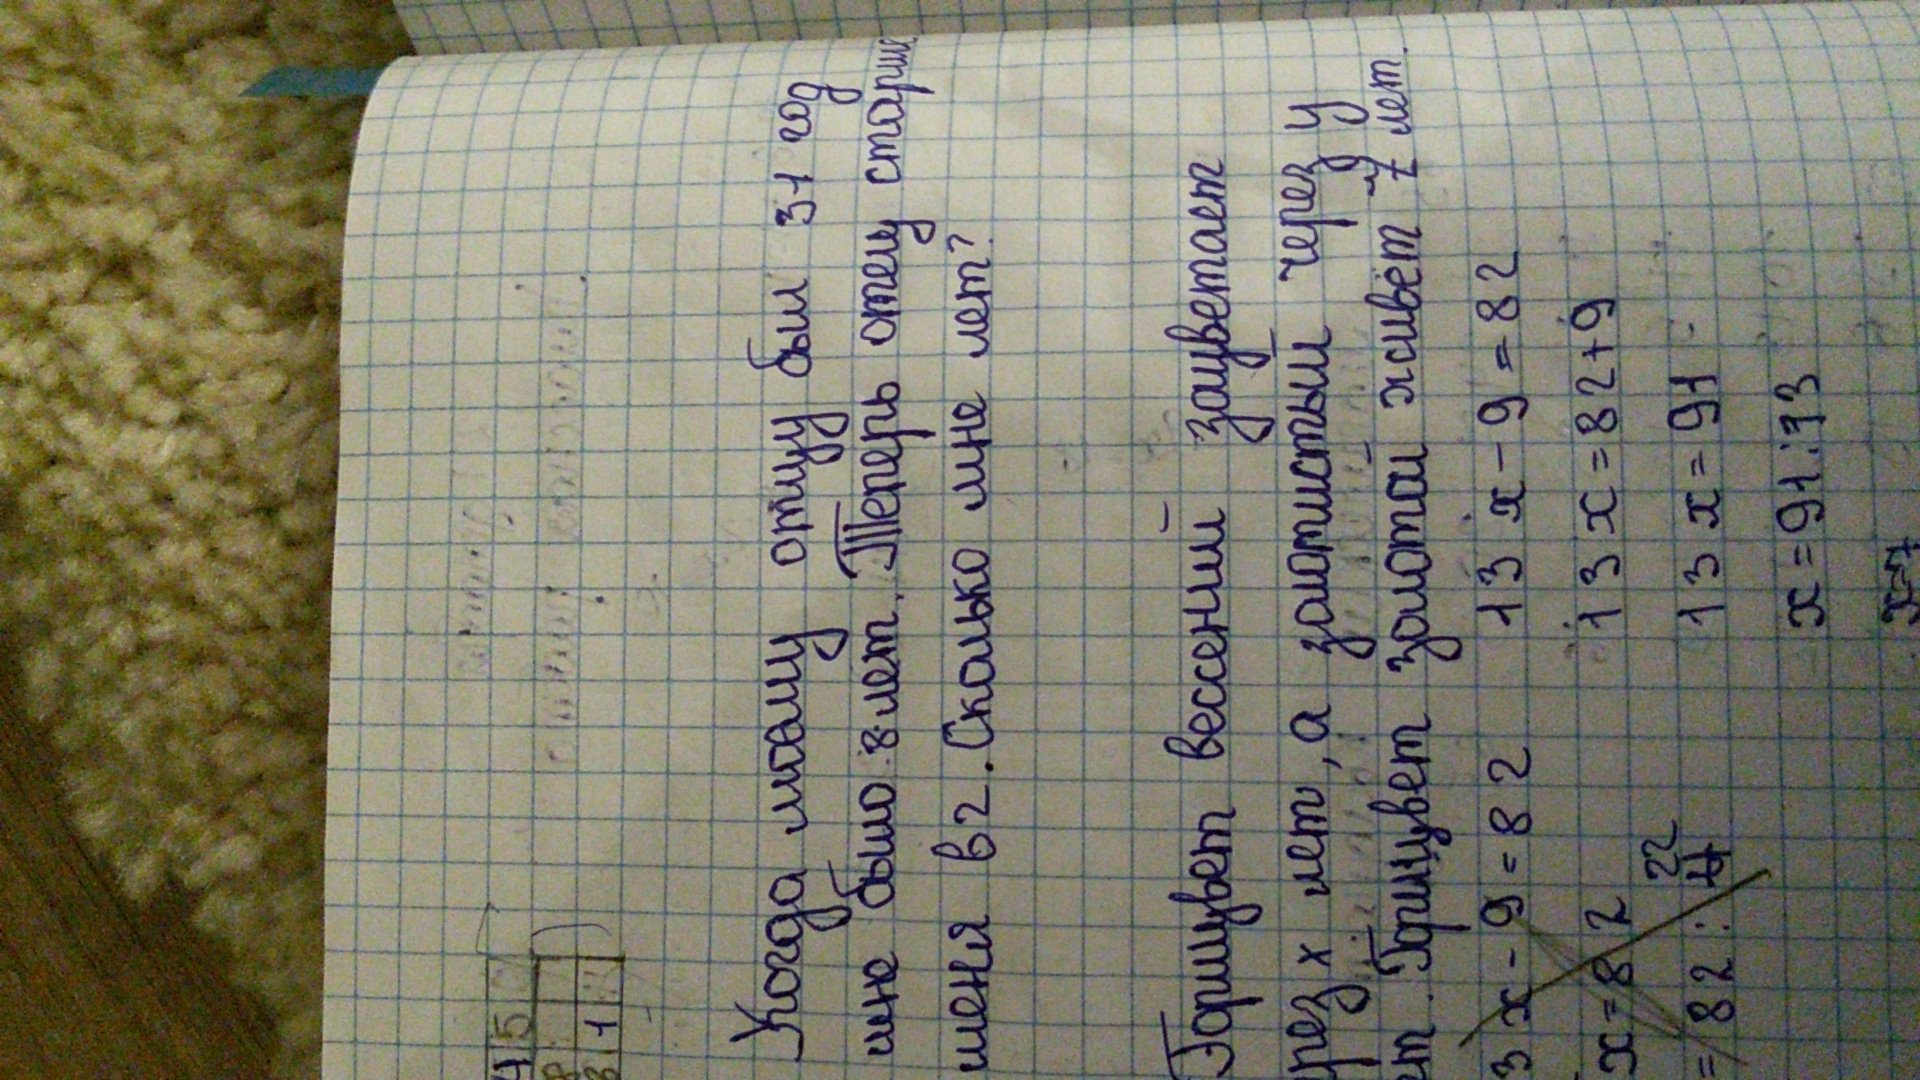 45
31
Когда моему отцу был 31 год
мне было 8 лет. Теперь отец старше
меня в 2. Сколько мне лет?
Горицвет вессений зацветает
рез х лет, а золотистый через у
ет. Горицвет золотой живёт 7 лет.
3х-9=82 13х-9=82
х=82 13х=82+9
=82: 22 13х=91
х=91:13
х=7